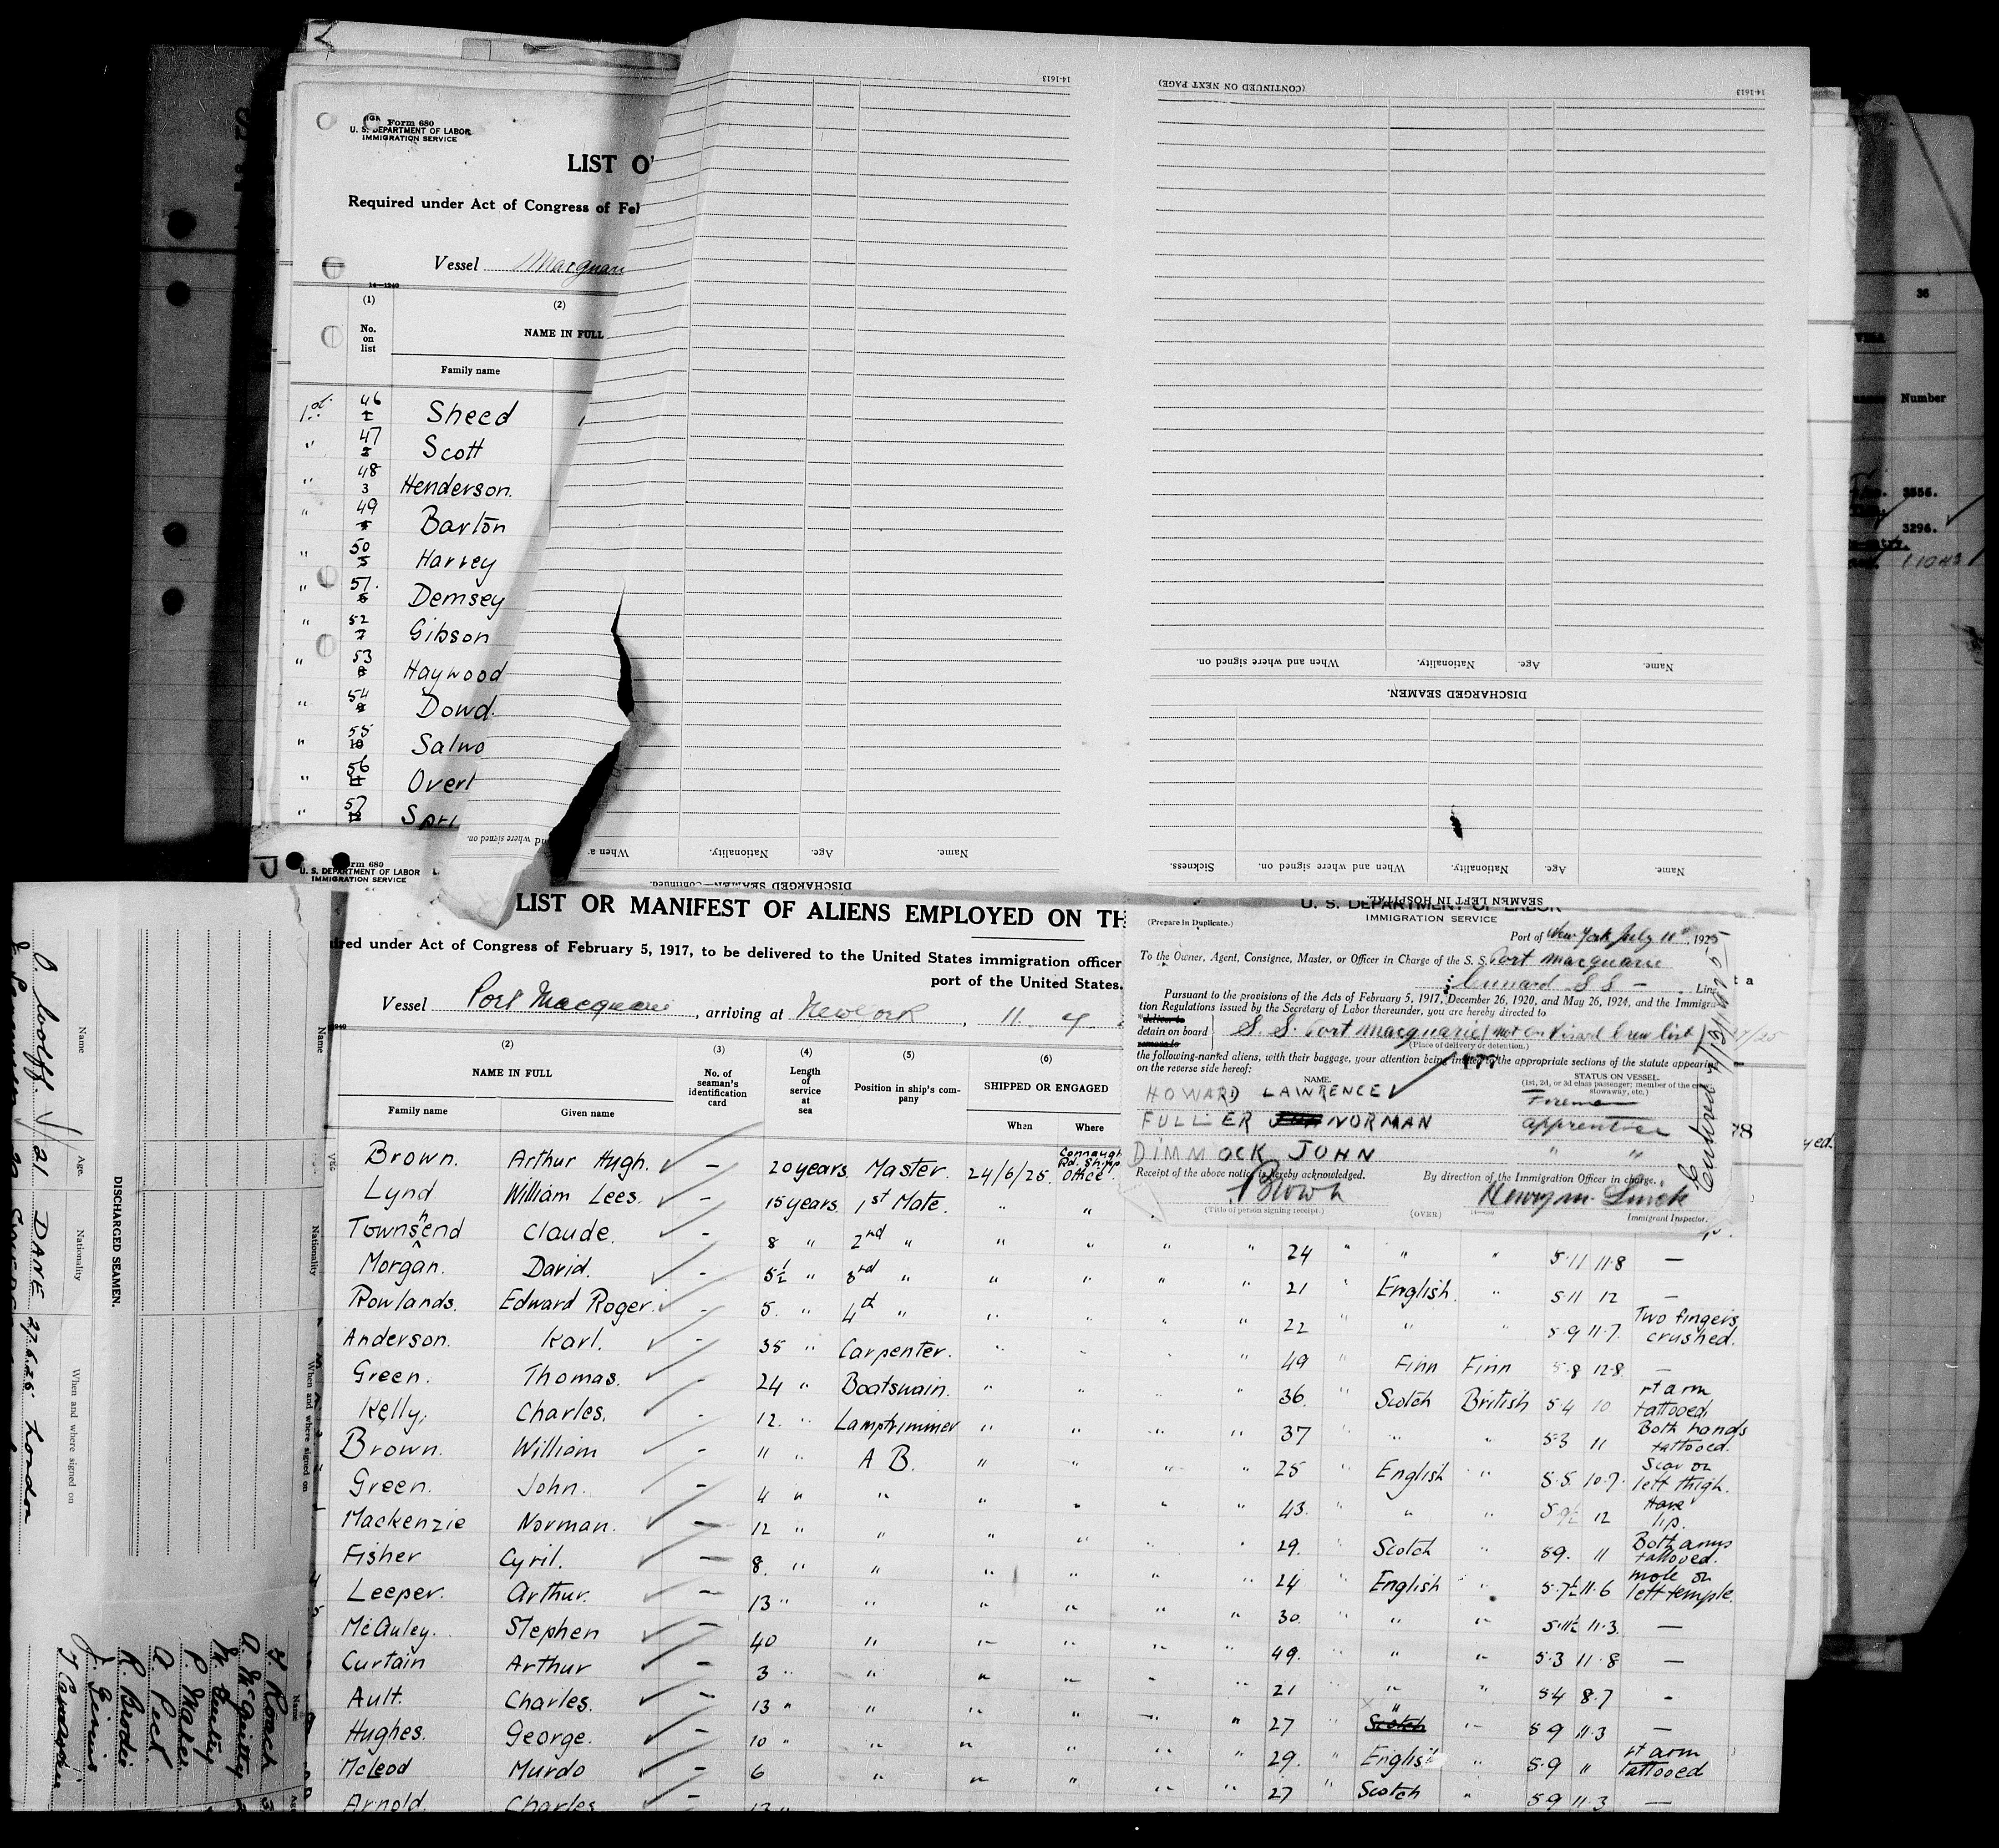 Form 680
U. S. DEPARTMENT OF LABOR
IMMIGRATION SERVICE
LIST O
Required under Act of Congress of Feb
Vessel Macquari
14-1240
(1) (2)
No. on list
NAME IN FULL
Family name
46 1 Sheed
" 47 2 Scott
" 48 3 Henderson.
" 49 4 Barton
" 50 5 Harvey
" 51. 6 Demsey
" 52 7 Gibson
" 53 8 Haywood
" 54 9 Dowd.
" 55 10 Salwo
" 56 11 Overt
" 57 12 Spri
14-1613
(CONTINUED ON NEXT PAGE)
14-1613
When and where signed on. Nationality. Age. Name.
DISCHARGED SEAMEN.
Sickness. When and where signed on. Nationality. Age. Name.
SEAMEN LEFT IN HOSPITAL.
and where signed on.
When a Nationality. Age. Name.
DISCHARGED SEAMEN—Continued.
36
Number
3556.
3296.
rm 680
U. S. DEPARTMENT OF LABOR
IMMIGRATION SERVICE
LIST OR MANIFEST OF ALIENS EMPLOYED ON TH
ired under Act of Congress of February 5, 1917, to be delivered to the United States immigration officer
port of the United States.
Vessel Port Macquarie, arriving at New York, 11. 7
(2) (3) (4) (5) (6)
NAME IN FULL
No. of seaman's identification card
Length of service at sea
Position in ship's company
SHIPPED OR ENGAGED
Family name Given name When Where
Brown. Arthur Hugh. – 20 years. Master. 24/6/25. Connaught Rd. Shipp Office.
Lynd William Lees. – 15 years. 1st Mate. " "
Townshend Claude. – 8 " 2nd " " " " " 24 " " " 5·11 11·8 —
Morgan. David. – 5½ " 3rd " " " " " 21 " English. " 5·11 12 —
Rowlands. Edward Roger. – 5. " 4th " " " " " 22 " " " 5·9 11·7. Two fingers crushed.
Anderson. Karl. – 35 " Carpenter. " " " " 49 " Finn Finn 5·8 12·8. —
Green. Thomas. – 24 " Boatswain. " " " " 36. " Scotch British 5·4 10 rt arm tattooed.
Kelly. Charles. – 12. " Lamptrimmer " " " " 37 " " " 5·3 11 Both hands tattooed.
Brown. William – 11 " A B. " " " " 25 " English " 5·5. 10·7. Scar on left thigh.
Green. John. – 4 " " " " " " 43. " " " 5·9½ 12 Hare lip.
Mackenzie Norman. – 12 " " " " " " 29. " Scotch " 5·9. 11 Both arms tattooed.
Fisher Cyril. – 8. " " " " " " 24 " English " 5·7½ 11·6 mole on left temple.
Leeper. Arthur. – 13 " " " " " " 30. " " " 5·11½ 11·3. —
McAuley. Stephen – 40 " " " " " 49. " " " 5·3 11·8 —
Curtain Arthur – 3 " " " " " " 21 " " " 5·4 8·7 -
Ault. Charles. – 13 " " " " " " 27 " Scotch " " 5·9 11·3 —
Hughes. George. – 10 " " " " " " 29. " English " 5·9 " rt arm tattooed
McLeod Murdo – 6 " " " " " 27 " Scotch " 5·9 11·3 —
Arnold. Charles
(Prepare in Duplicate.)
U. S. DEPARTMENT OF LABOR
IMMIGRATION SERVICE
Port of New York July 11th, 1925
To the Owner, Agent, Consignee, Master, or Officer in Charge of the S. S. Port Macquarie
Cunard S S – Line
Pursuant to the provisions of the Acts of February 5, 1917, December 26, 1920, and May 26, 1924, and the Immigra-
tion Regulations issued by the Secretary of Labor thereunder, you are hereby directed to
*deliver to
detain on board
remove to
S. S. Port Macquarie (not on Visaed Crew list)
(Place of delivery or detention.)
the following-named aliens, with their baggage, your attention being invited to the appropriate sections of the statute appearing
on the reverse side hereof:
NAME. STATUS ON VESSEL.
(1st, 2d, or 3d class passenger; member of the crew, stowaway, etc.)
HOWARD LAWRENCE Fireman
FULLER NORMAN apprentice
DIMMOCK JOHN " "
Receipt of the above notice is hereby acknowledged. By direction of the Immigration Officer in charge.
Brown
(Title of person signing receipt.) (OVER) Immigrant Inspector.
Entered 7/13/1925
78
DISCHARGED SEAMEN.
Name Age. Nationality When and where signed on
O. Wolff. 21 DANE 27.6.25 London
Name Nationality When and where signed on
J. Roach
A. McGuitty
P. Maher
A. Peel
R. Brodie